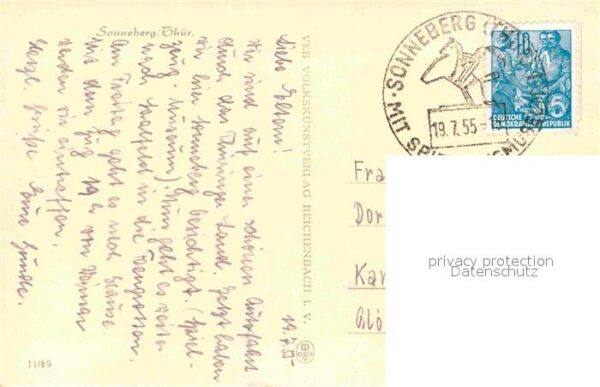 Sonneberg/Thür.
19.7.55
Liebe Eltern!
Wir sind auf einer schönen Autofahrt
durch das Thüringer Land. Jetzt haben
wir hier Sonneberg besichtigt. (Spiel-
zeug-Museum). Nun geht es weiter
nach Saalfeld in die Feengrotten.
Am Freitag geht es nach Hause
Mit dem Zug 19 von Weimar
werden wir eintreffen.
Herzl. Grüße Eure
VEB VOLKSKUNSTVERLAG REICHENBACH I. V.
11/69
SONNEBERG (THÜR
MIT SPIELZEUGMUSEUM
19.7.55
10
5
DEUTSCHE
DEMOKRATISCHE REPUBLIK
Fra
Dor
Kar
Glö
privacy protection
Datenschutz